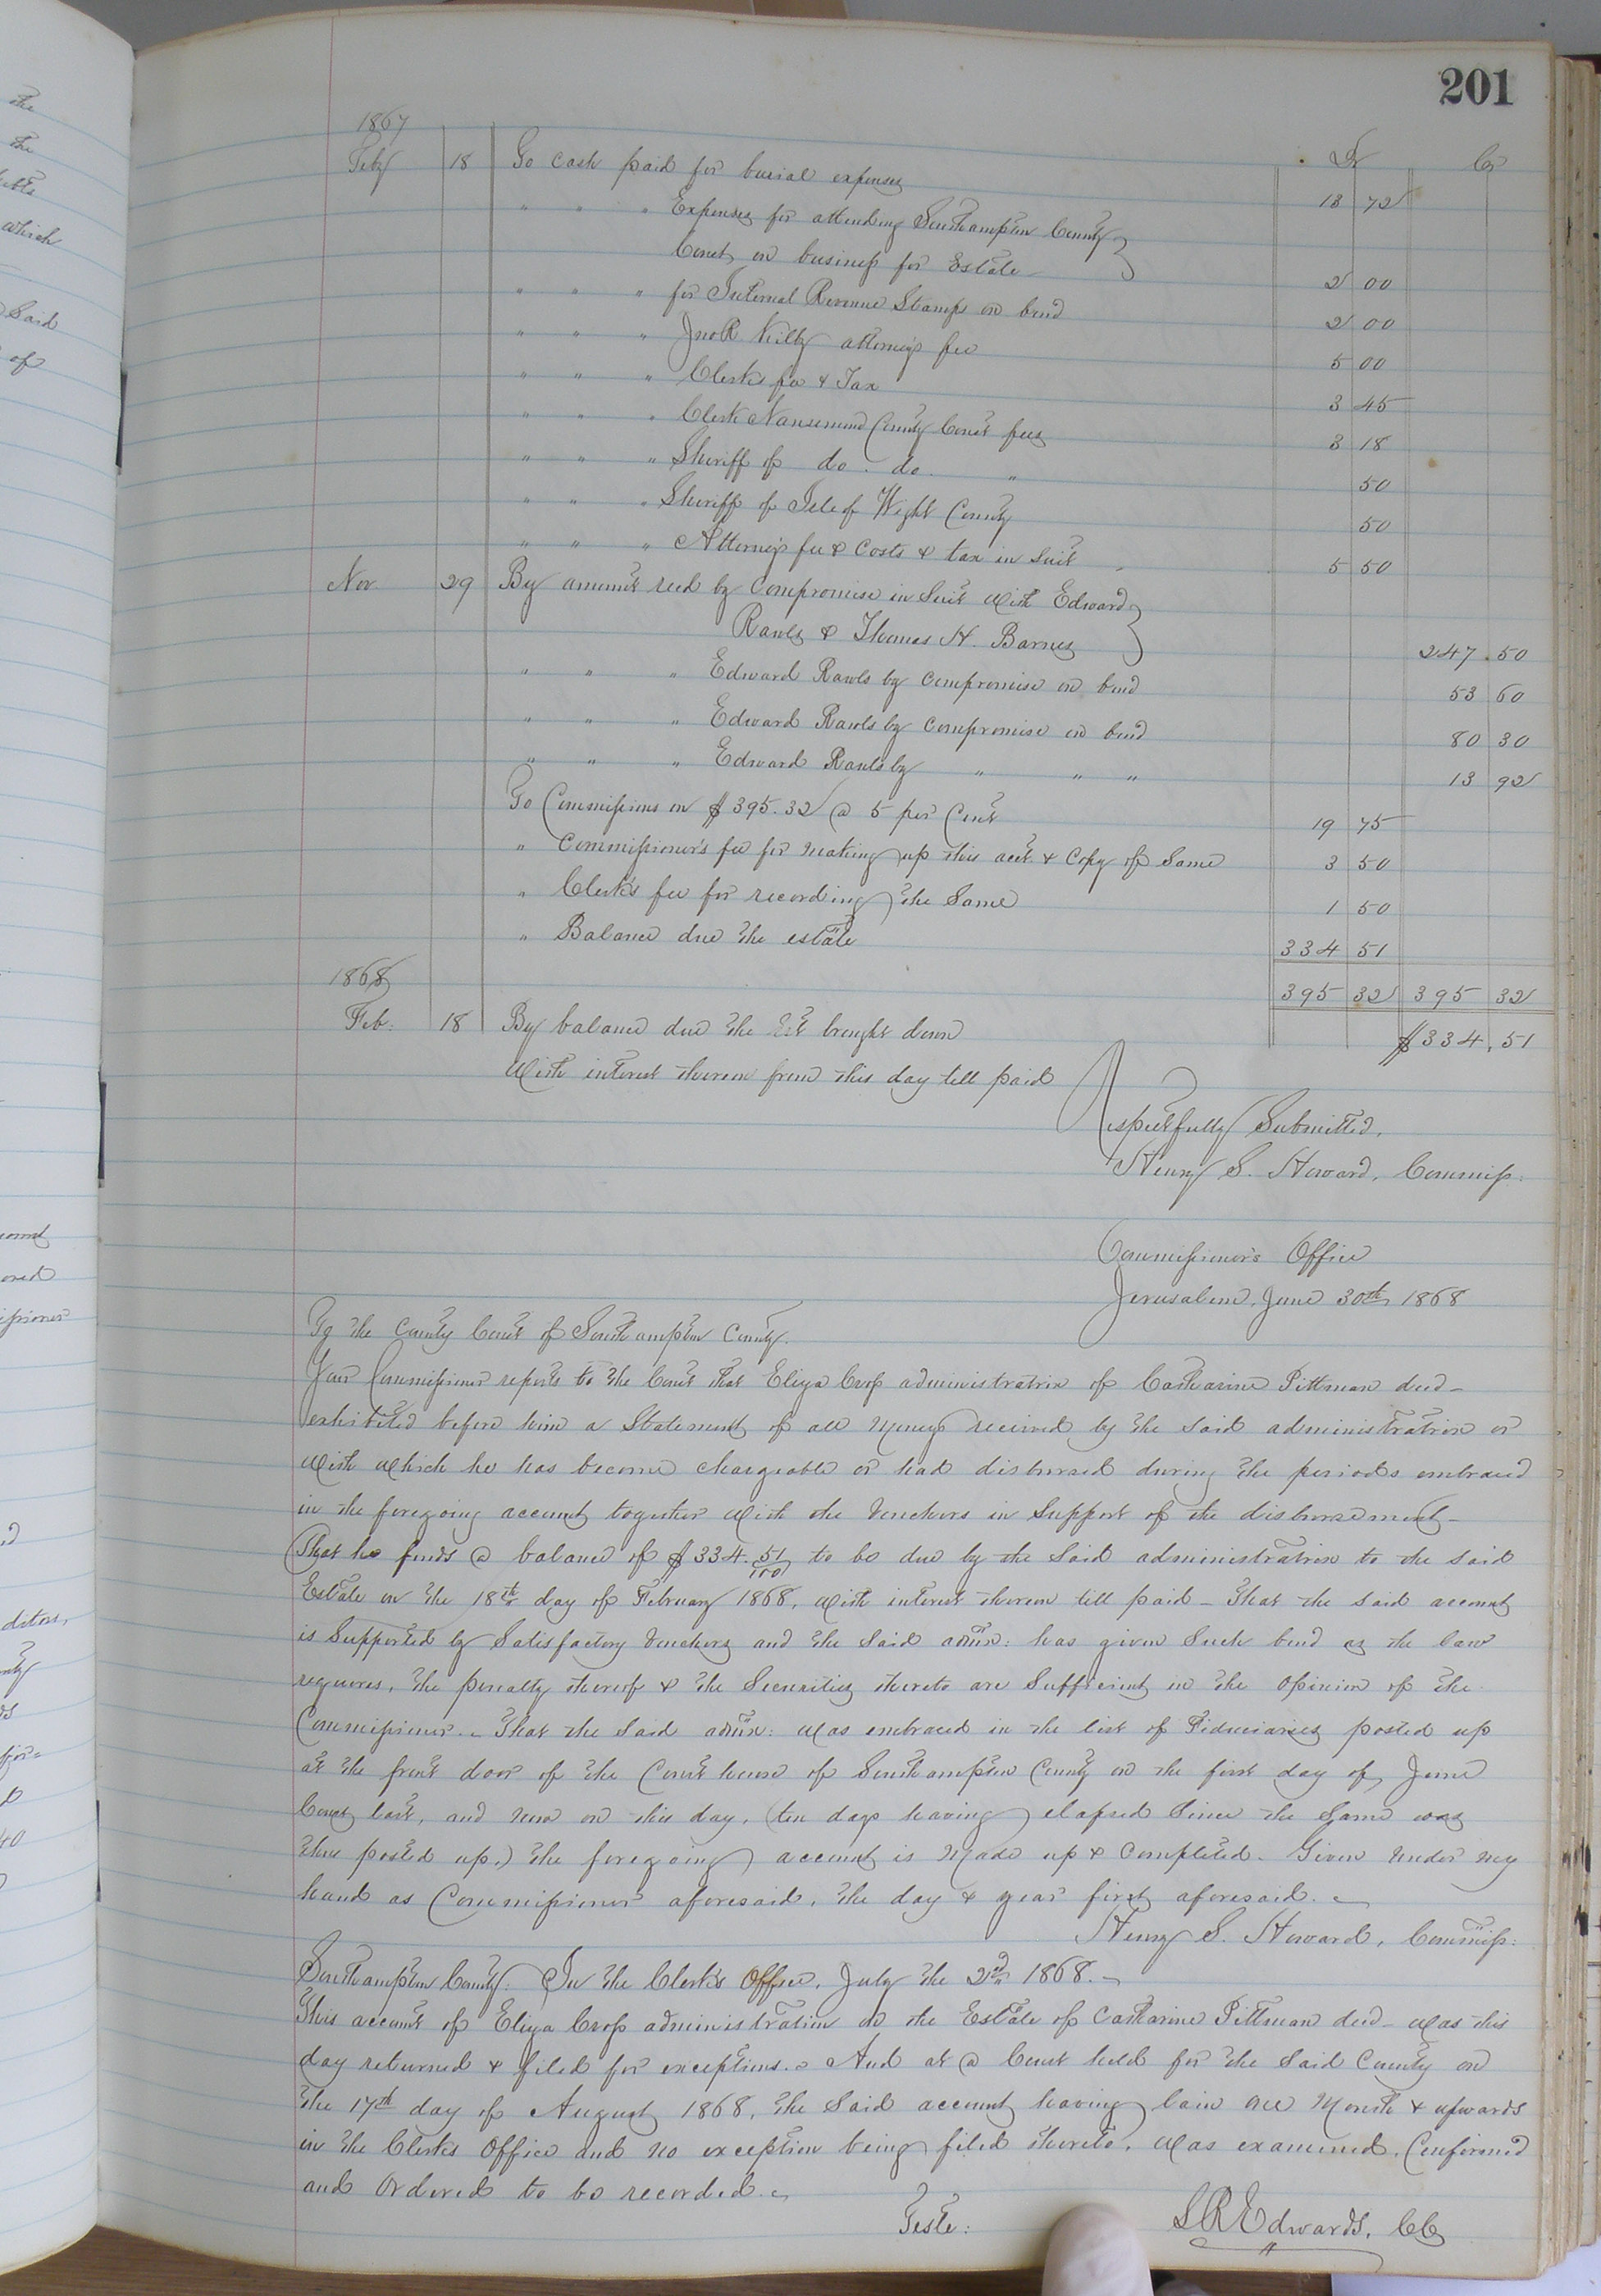 201
1867
Dr Cr
Feby 18 To cash paid for burial expenses 13 72
" " " Expenses for attending Southampton County
Court on business for Estate 2 00
" " " for Internal Revenue Stamps on bond 2 00
" " " Jno R Kilby attorney's fee 5 00
" " " Clerk's fee & Tax 3 45
" " " Clerk Nansemond County Court fees 3 18
" " " Sheriff of do. do. " 50
" " " Sheriff of Isle of Wight County 50
" " " Attorney's fee & Costs & tax in Suit 5 50
Nov. 29 By amount recd by Compromise in Suit with Edward
Rawls & Thomas H. Barnes 247.50
" " " Edward Rawls by compromise on bond 53 60
" " " Edward Rawls by compromise on bond 80 30
" " " Edward Rawls by " " " 13 92
To Commissions on $395.32 @ 5 per Cent 19 75
" Commissioner's fee for making up this acct & Copy of Same 3 50
" Clerk's fee for recording the Same 1 50
" Balance due the estate 334 51
1868 395 32 395 32
Feb. 18 By balance due the Est brought down $334.51
With interest thereon from this day till paid
Respectfully Submitted,
Henry S. Howard, Commiss:
Commissioner's Office
Jerusalem, June 30th 1868
To the County Court of Southampton County.
Your Commissioner reports to the Court that Eliza Crop administratrix of Catharine Pittman decd—
exhibited before him a Statement of all Moneys received by the said administratrix or
with which he has become chargeable or had disbursed during the periods embraced
in the foregoing account together with the Vouchers in Support of the disbursement—
That he finds a balance of $334.51/100 to be due by the Said administratrix to the said
Estate on the 18th day of February 1868, with interest thereon till paid — That the said account
is Supported by Satisfactory Vouchers and the Said admx: has given Such bond as the law
requires, the penalty thereof & the Securities thereto are Sufficient in the opinion of the
Commissioner. — That the Said admx: was embraced in the list of Fiduciaries posted up
at the front door of the Court house of Southampton County on the first day of June
Court last, and now on this day, (ten days having elapsed Since the Same was
thus posted up,) the foregoing account is Made up & Completed. Given under my
hand as Commissioner aforesaid, the day & year first aforesaid. —
Henry S. Howard, Commiss:
Southampton County: In the Clerk's Office, July the 2nd 1868. —
This account of Eliza Crop administration on the Estate of Catharine Pittman decd— was this
day returned & filed for exceptions. — And at a Court held for the Said County on
the 17th day of August 1868, the Said account having lain one Month & upwards
in the Clerks Office and no exception being filed thereto, was examined, Confirmed
and Ordered to be recorded. —
Teste: L R Edwards, CC